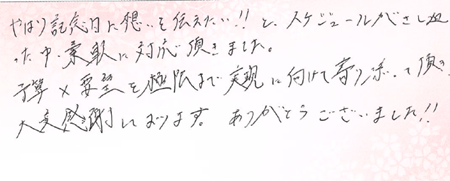 やはり記念日に想いを伝えたい!! と、スケジュールがさし迫
った中、柔軟に対応頂きました。
予算×要望を極限まで実現に付けて寄りそって頂き
大変感謝しております。ありがとうございました!!